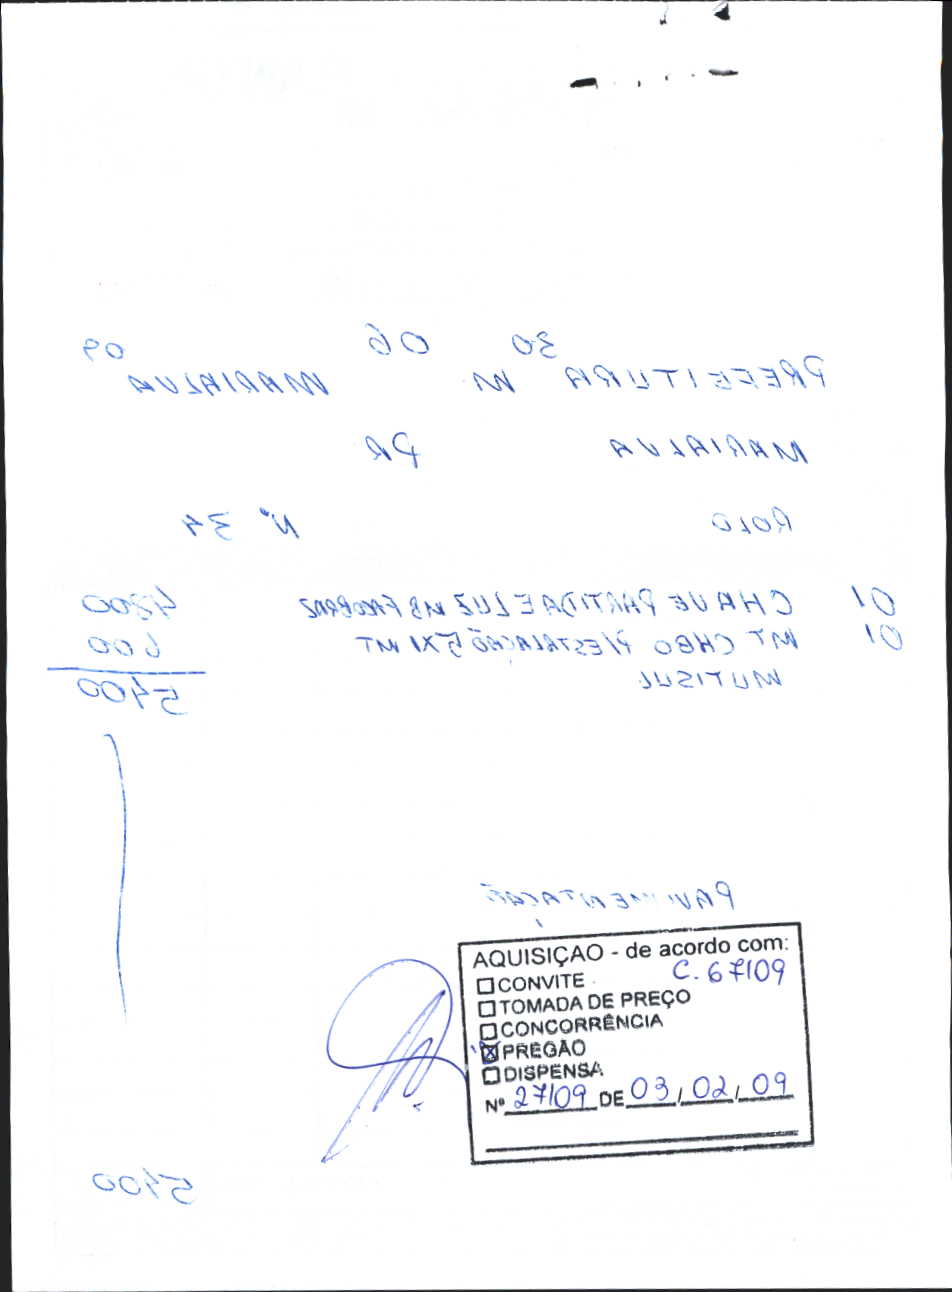 30 06 09
PREFEITURA M MARIALVA
MARIALVA PR
ROLO Nº 34
01 CHAVE PARTIDA E LUZ MB 4800
01 MT CABO P/ESTALAÇÃO 5X1 MT 600
MUTISUL 5400
PAVIMENTAÇÃO
AQUISIÇAO - de acordo com:
☐ CONVITE C. 67/09
☐ TOMADA DE PREÇO
☐ CONCORRÊNCIA
☒ PREGÃO
☐ DISPENSA
Nº 27/09 DE 03/02/09
5400